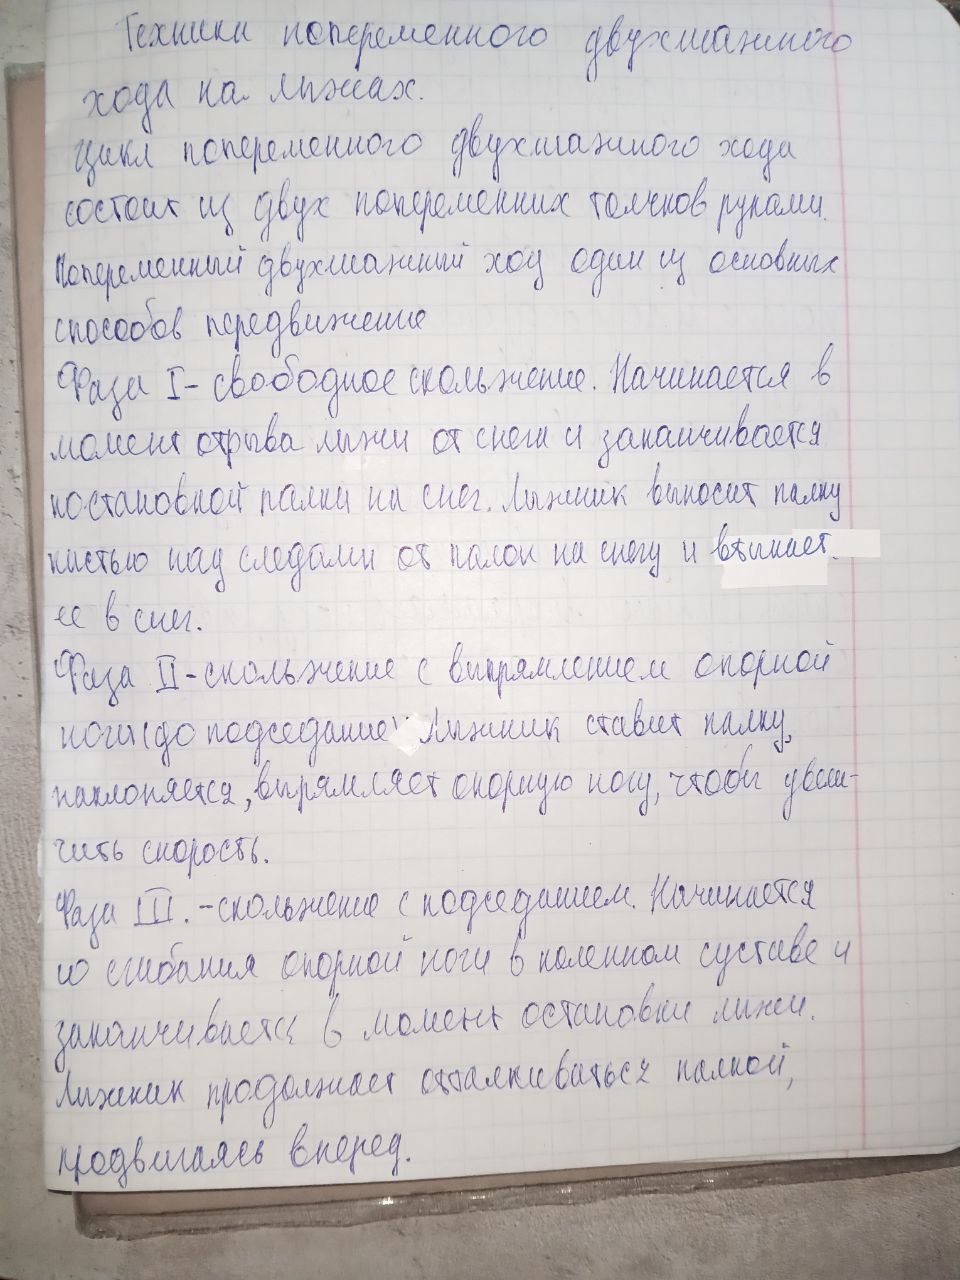 Техники попеременного двухшажного
хода на лыжах.
Цикл попеременного двухшажного хода
состоит из двух попеременных толчков руками.
Попеременный двухшажный ход один из основных
способов передвижение
Фаза I - свободное скольжение. Начинается в
момент отрыва лыжи от снега и заканчивается
постановкой палки на снег. Лыжник выносит палку
кистью над следами от палок на снегу и втыкает.
ее в снег.
Фаза II - скольжение с выпрямлением опорной
ноги (до подседание) Лыжник ставит палку,
наклоняется, выпрямляет опорную ногу, чтобы увели-
чить скорость.
Фаза III. - скольжение с подседанием. Начинается
со сгибания опорной ноги в коленном суставе и
заканчивается в момент остановки лыжи.
Лыжник продолжает отталкиваться палкой,
продвигаясь вперед.